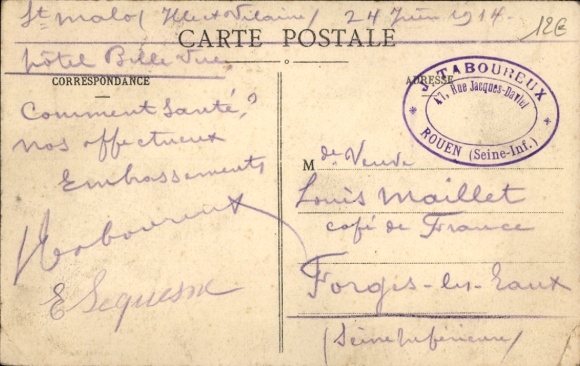 St malo (Ille et Vilaine) 24 Juin 1914.
12€
CARTE POSTALE
hôtel Belle Vue,
CORRESPONDANCE
ADRESSE
J. TABOUREUX
47, Rue Jacques-Daviel
ROUEN (Seine-Inf.)
Comment Santé ?
nos affectueux
Embrassements
JTaboureux
E
M de Veuve
Louis Maillet
café de France
Forges-les-Eaux
(Seine inférieure)